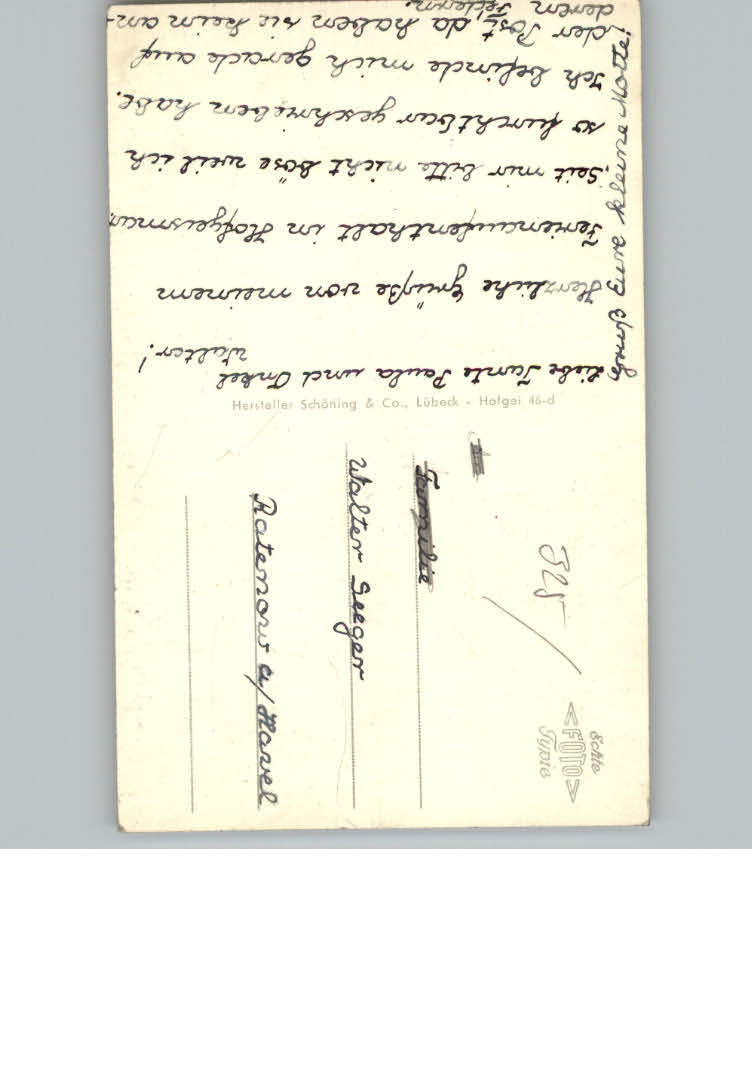 Liebe Tante Paula und Onkel
Walter!
Herzliche Grüße von meinem
Ferienaufenthalt in Hofgeismar.
Seit mir bitte nicht böse weil ich
so furchtbar geschrieben habe.
Ich befinde mich gerade auf
der Post, da haben sie kein an-
deren Federn.
Eure kleine
Hersteller Schöning & Co., Lübeck - Hofgei 46-d
Familie
Walter Seeger
Ratenow a/Havel
Echte
FOTO
Typie